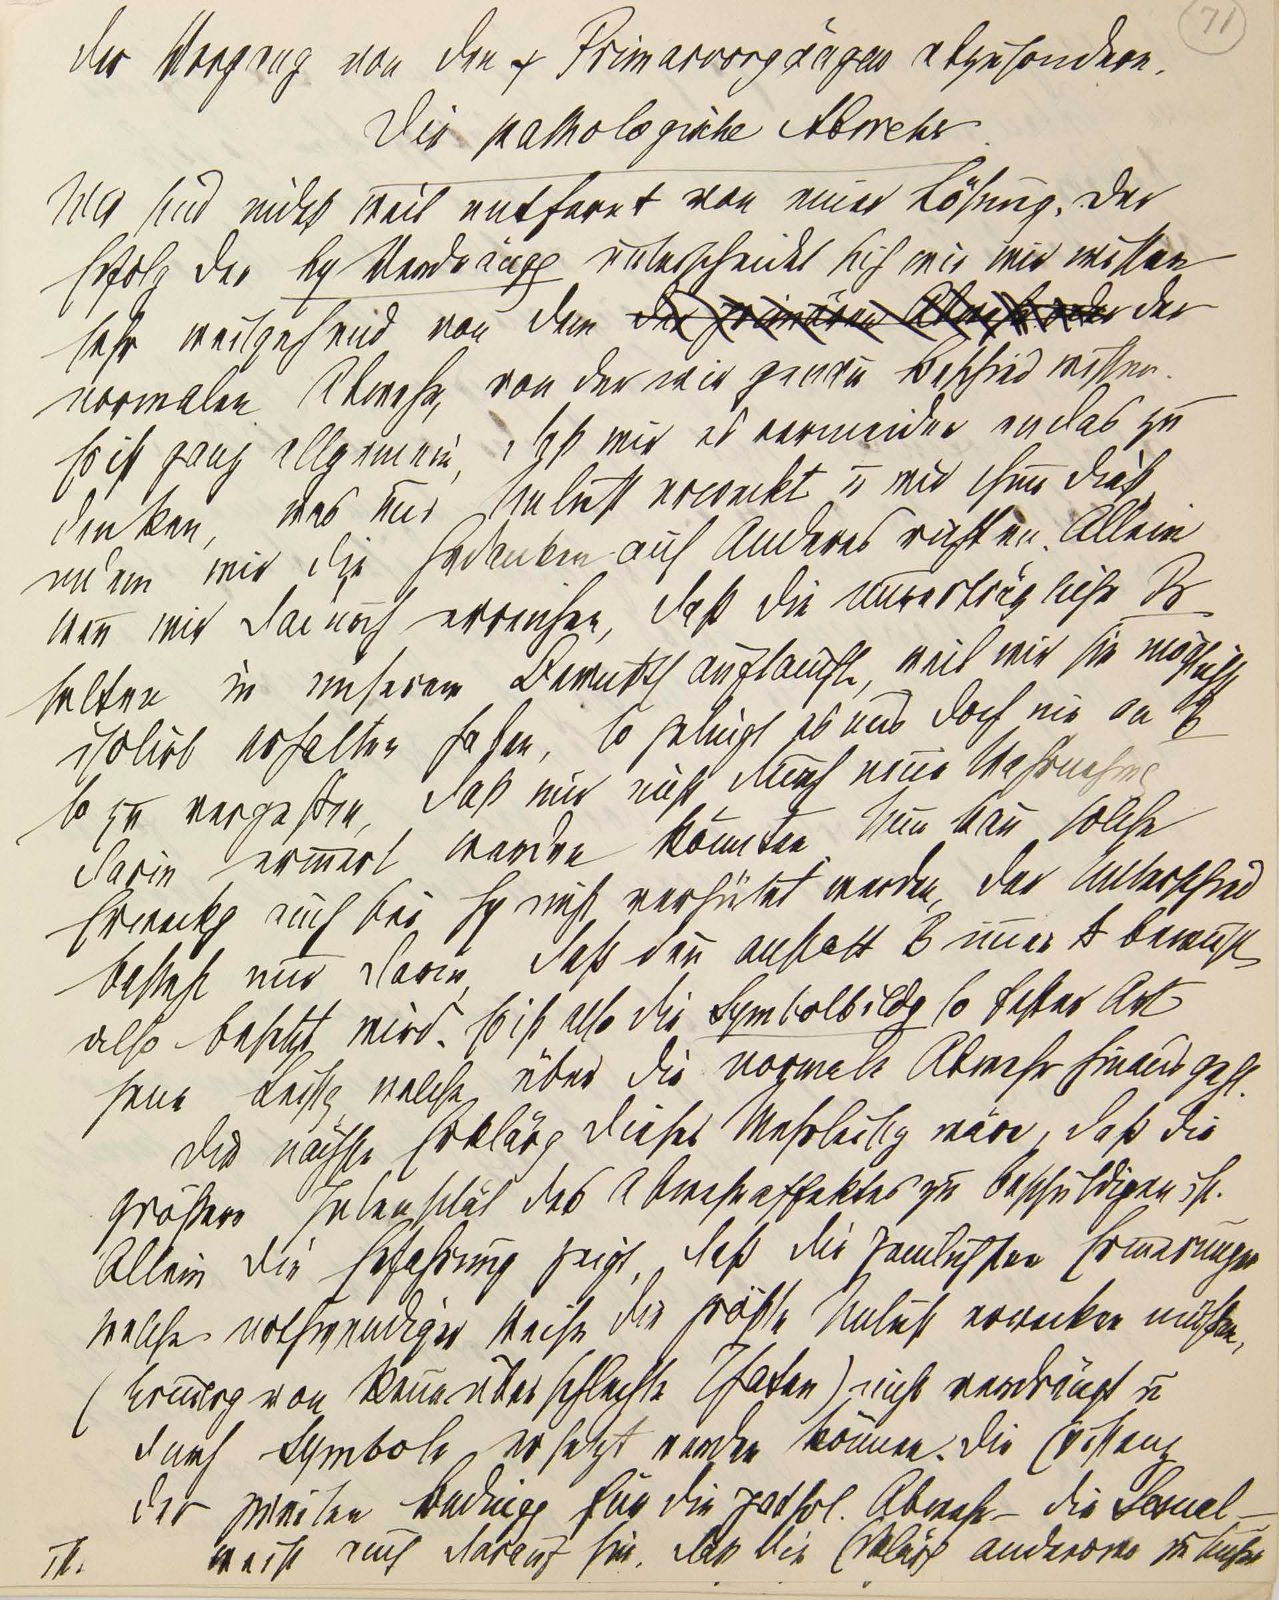 71
der Vorgang von den ψ Primärvorgängen abzusondern.
Die pathologische Abwehr.
Wir sind nicht weit entfernt von einer Lösung. Der
Erfolg der hy Verdrängg unterscheidet sich wie wir wissen
sehr weitgehend von dem der primären Abwehr oder der
normalen Abwehr, von der wir genau Bescheid wissen.
Es ist ganz allgemein, daß wir es vermeiden an das zu
denken, was nur Unlust erweckt u wir thun dies,
indem wir die Gedanken auf Anderes richten. Allein
wenn wir darnach erreichen, daß die unverträgliche B
selten in unserem Bewußts auftaucht, weil wir sie möglichst
isolirt erhalten haben, so gelingt es uns doch nie an B
so zu vergessen, daß wir nicht durch neue Wahrnehmg
darin erinnert werden könnten. Nun kann solche
Erweckg auch bei Hy nicht verhütet werden, der Unterschied
besteht nur darin, daß dann anstatt B immer A bewußt,
also besetzt wird. Es ist also die Symbolbildg so fester Art
jene Leistg welche über die normale Abwehr hinausgeht.
Die nächste Erklärg dieser Mehrleistg wäre, daß die
größere Intensität des Abwehraffektes zu beschuldigen ist.
Allein die Erfahrung zeigt, daß die peinlichsten Erinnerungen
welche nothwendiger Weise die größte Unlust erwecken müßten,
(Erinnerg von Reue über schlechte Thaten) nicht verdrängt u
durch Symbole ersetzt werden können. Die Existenz
der zweiten Bedingg für die pathol. Abwehr – die Sexual–
th. weist auch darauf hin, daß die Erklärg anderswo zu suchen